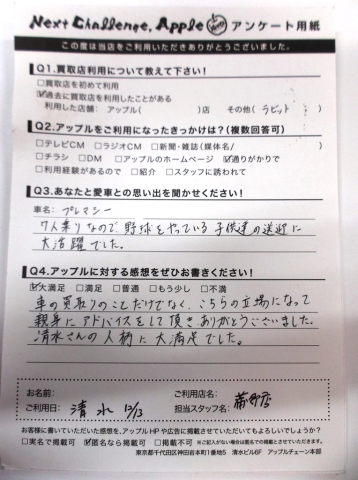 Next Challenge, Apple アンケート用紙
この度は当店をご利用いただきありがとうございました。
Q1.買取店利用について教えて下さい!
□買取店を初めて利用
☑過去に買取店を利用したことがある
利用した店舗: アップル( )店 その他( ラビット )
Q2.アップルをご利用になったきっかけは?(複数回答可)
□テレビCM □ラジオCM □新聞・雑誌(媒体名/ )
□チラシ □DM □アップルのホームページ ☑通りがかりで
□利用経験があるので □紹介 □スタッフに誘われて
Q3.あなたと愛車との思い出を聞かせください!
車名: プレマシー
7人乗りなので、野球をやっている子供達の送迎に
大活躍でした。
Q4.アップルに対する感想をぜひお書きください!
☑大満足 □満足 □普通 □もう少し □不満
車の買取りのことだけでなく、こちらの立場になって
親身にアドバイスをして頂きありがとうございました。
清水さんの人柄に大満足でした。
お名前: ご利用店名:
ご利用日: 清水 12/13 担当スタッフ名:
お客様に書いていただいた感想を、アップルHPや広告に掲載させていただいてもよろしいでしょうか?
□実名で掲載可 ☑匿名なら掲載可 □掲載不可 ※ご記入がない場合は匿名での掲載とさせていただきます。
東京都千代田区神田岩本町1番地5 清水ビル6F アップルチェーン本部